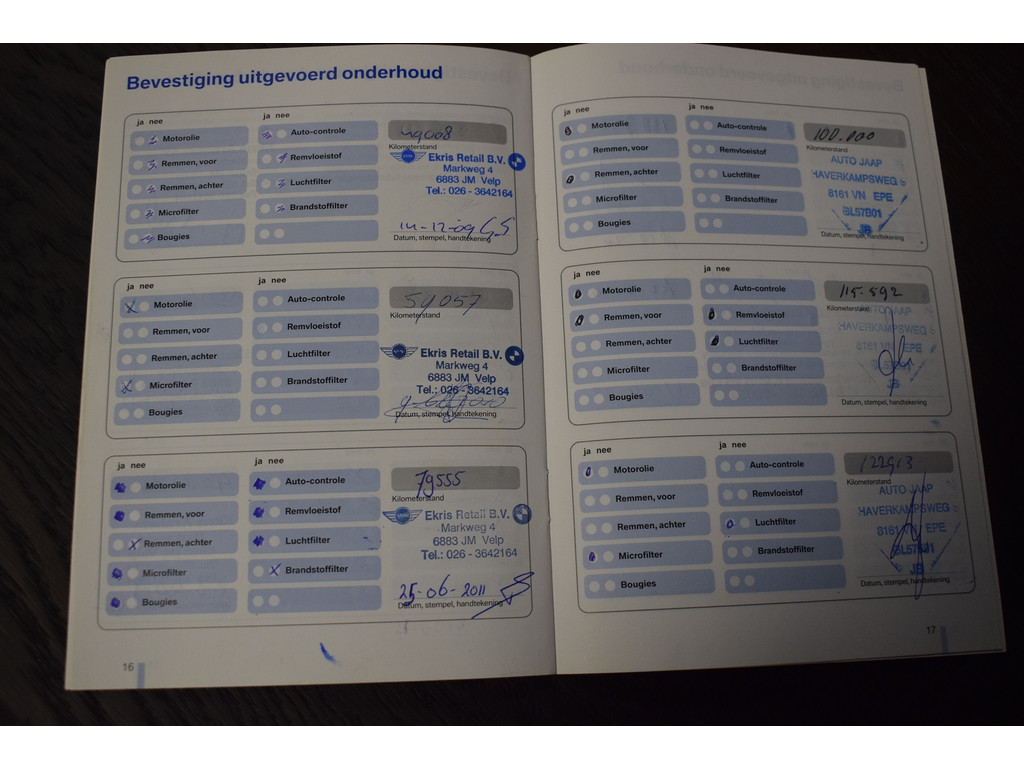 Bevestiging uitgevoerd onderhoud
ja nee
ja nee
Motorolie
Auto-controle
Remmen, voor
Remvloeistof
Remmen, achter
Luchtfilter
Microfilter
Brandstoffilter
Bougies
Kilometerstand
Ekris Retail B.V.
Markweg 4
6883 JM Velp
Tel.: 026 - 3642164
14-12-09
Datum, stempel, handtekening
ja nee
ja nee
Motorolie
Auto-controle
Remmen, voor
Remvloeistof
Remmen, achter
Luchtfilter
Microfilter
Brandstoffilter
Bougies
59057
Kilometerstand
Ekris Retail B.V.
Markweg 4
6883 JM Velp
Tel.: 026 - 3642164
Datum, stempel, handtekening
ja nee
ja nee
Motorolie
Auto-controle
Remmen, voor
Remvloeistof
Remmen, achter
Luchtfilter
Microfilter
Brandstoffilter
Bougies
79555
Kilometerstand
Ekris Retail B.V.
Markweg 4
6883 JM Velp
Tel.: 026 - 3642164
25-06-2011
Datum, stempel, handtekening
16
ja nee
ja nee
Motorolie
Auto-controle
Remmen, voor
Remvloeistof
Remmen, achter
Luchtfilter
Microfilter
Brandstoffilter
Bougies
100.000
Kilometerstand
AUTO JAAP
HAVERKAMPSWEG
8161 VN EPE
BL57B01
JB
Datum, stempel, handtekening
ja nee
ja nee
Motorolie
Auto-controle
Remmen, voor
Remvloeistof
Remmen, achter
Luchtfilter
Microfilter
Brandstoffilter
Bougies
115-592
Kilometerstand
AUTO JAAP
HAVERKAMPSWEG
8161 VN EPE
JB
Datum, stempel, handtekening
ja nee
ja nee
Motorolie
Auto-controle
Remmen, voor
Remvloeistof
Remmen, achter
Luchtfilter
Microfilter
Brandstoffilter
Bougies
122913
Kilometerstand
AUTO JAAP
HAVERKAMPSWEG
8161 VN EPE
BL57B01
JB
Datum, stempel, handtekening
17